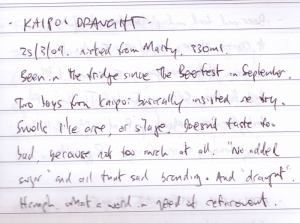 · KAIPOI DRAUGHT ·
25/3/09. from Marty, 330ml.
Been in the fridge since The Beerfest in September.
Two boys from Kaipoi basically insisted we try.
Smells like , or silage. Doesn't taste too
bad, because not too much at all. "No added
sugar" and all that sad branding. And "draught".
Hmmph, what a word in need of retirement.